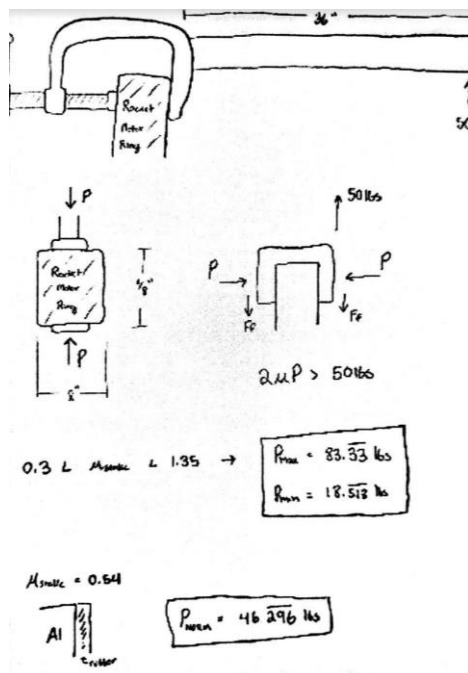 36"
Rocket
Motor
Ring
50
P
Rocket
Motor
Ring
P
50 lbs
P
P
Ff
Ff
2μP > 50 lbs
0.3 < μstatic < 1.35 →
Pmax = 83.33 lbs
Pmin = 18.518 lbs
μstatic = 0.54
Al
trubber
PNORM = 46.296 lbs